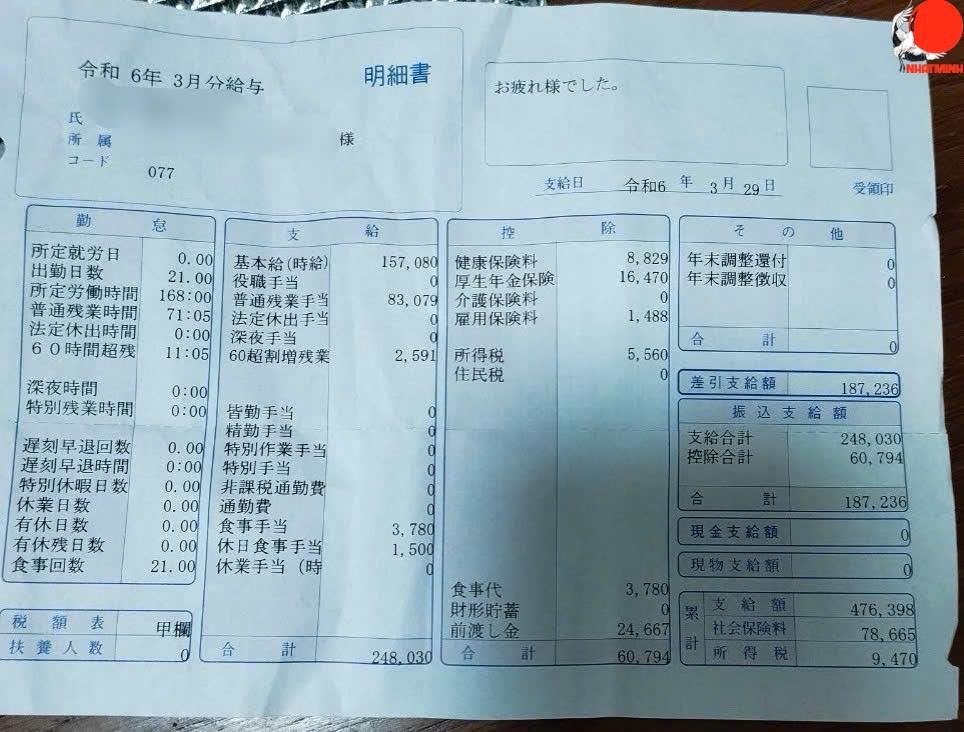 NHATMINH
令和 6年 3月分給与
明細書
氏
所属
様
コード
077
お疲れ様でした。
支給日 令和6年 3月29日
受領印
勤怠
所定就労日 0.00
出勤日数 21.00
所定労働時間 168:00
普通残業時間 71:05
法定休出時間 0:00
60時間超残 11:05
深夜時間 0:00
特別残業時間 0:00
遅刻早退回数 0.00
遅刻早退時間 0:00
特別休暇日数 0.00
休業日数 0.00
有休日数 0.00
有休残日数 0.00
食事回数 21.00
税額表 甲欄
扶養人数 0
支給
基本給(時給) 157,080
役職手当 0
普通残業手当 83,079
法定休出手当 0
深夜手当 0
60超割増残業 2,591
皆勤手当 0
精勤手当 0
特別作業手当 0
特別手当 0
非課税通勤費 0
通勤費 0
食事手当 3,780
休日食事手当 1,500
休業手当(時 0
合計 248,030
控除
健康保険料 8,829
厚生年金保険 16,470
介護保険料 0
雇用保険料 1,488
所得税 5,560
住民税 0
食事代 3,780
財形貯蓄 0
前渡し金 24,667
合計 60,794
その他
年末調整還付 0
年末調整徴収 0
合計 0
差引支給額 187,236
振込支給額
支給合計 248,030
控除合計 60,794
合計 187,236
現金支給額 0
現物支給額 0
累計
支給額 476,398
社会保険料 78,665
所得税 9,470